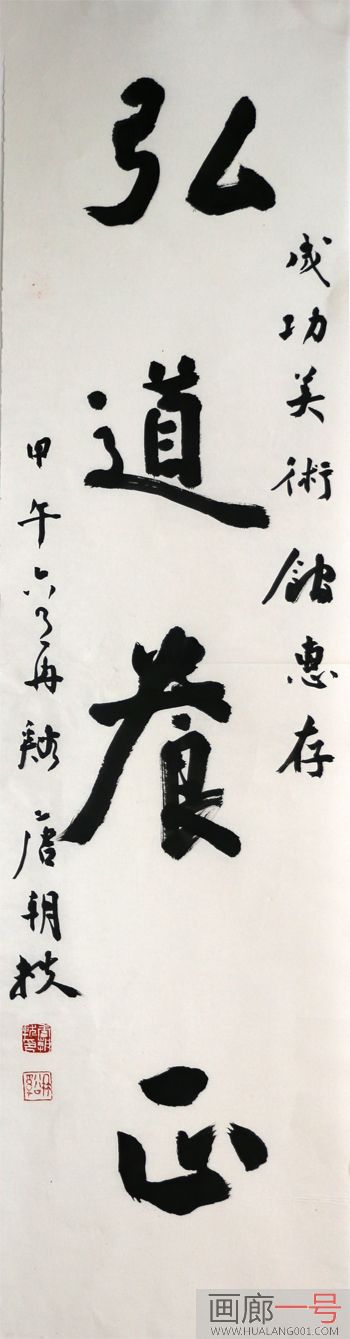 成功美術館惠存
弘道養正
甲午六月冉谿唐朝軼
画廊一号
WWW.HUALANG001.COM